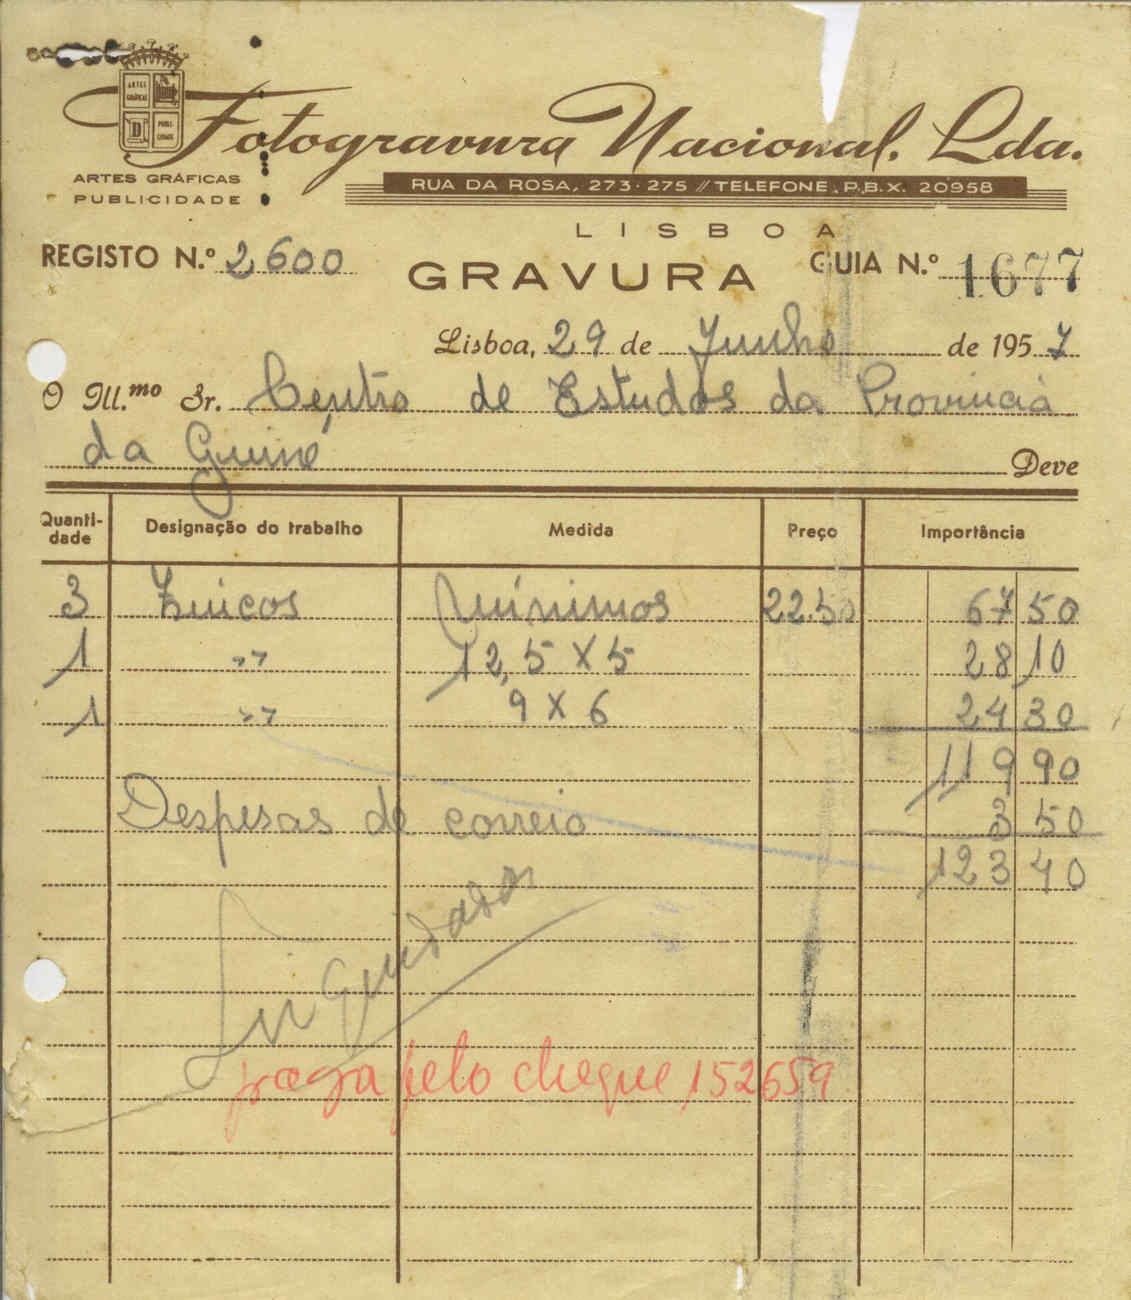 ARTES GRÁFICAS
D
PUBLICIDADE
Fotogravura Nacional, Lda.
ARTES GRÁFICAS
PUBLICIDADE
RUA DA ROSA, 273-275 // TELEFONE, P.B.X. 20958
LISBOA
REGISTO N.º 2600
GRAVURA
GUIA N.º 1677
Lisboa, 29 de Junho de 1957
O Ill.mo Sr. Centro de Estudos da Provincia
da Guiné Deve
Quanti-dade Designação do trabalho Medida Preço Importância
3 Zincos Mínimos 22.50 67 50
1 " 12,5 X 5 28 10
1 " 9 X 6 24 30
119 90
Despesas de correio 3 50
123 40
paga pelo cheque 152659